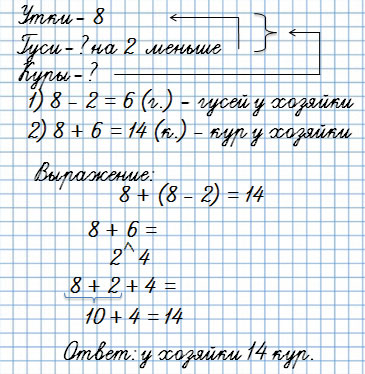 Утки – 8
Гуси – ? на 2 меньше
Куры – ?
1) 8 – 2 = 6 (г.) – гусей у хозяйки
2) 8 + 6 = 14 (к.) – кур у хозяйки
Выражение:
8 + (8 – 2) = 14
8 + 6 =
2 4
8 + 2 + 4 =
10 + 4 = 14
Ответ: у хозяйки 14 кур.